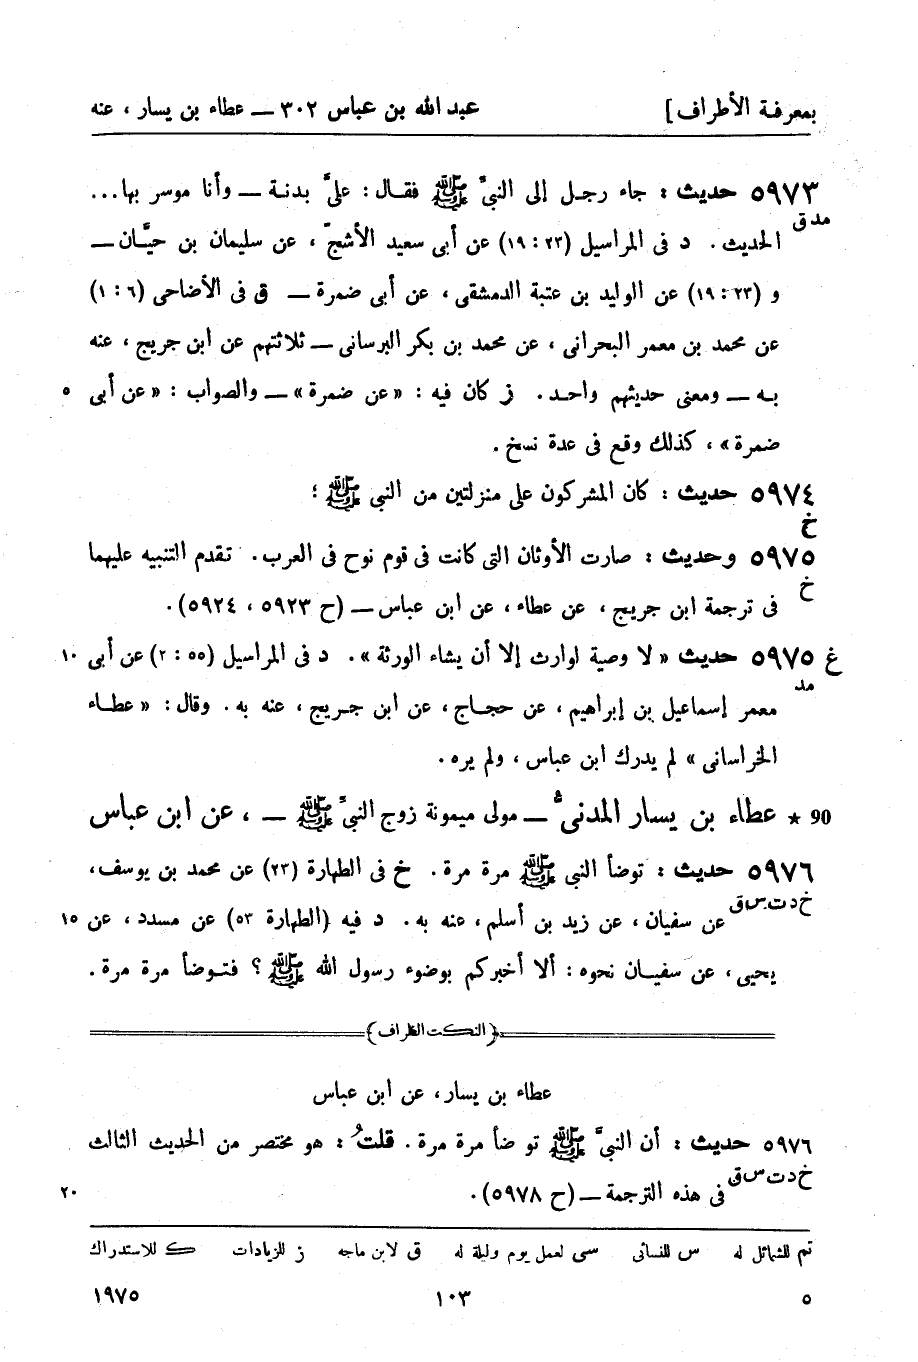 بمعرفة الأطراف] عبد الله بن عباس ٣٠٢ — عطاء بن يسار ، عنه
٥٩٧٣ حديث : جاء رجل إلى النبيّ ﷺ فقال : عليَّ بدنة — وأنا موسر بها...
مد ق
الحديث . د فى المراسيل (٢٣ : ١٩) عن أبى سعيد الأشجّ ، عن سليمان بن حيَّان —
و (٢٣ : ١٩) عن الوليد بن عتبة الدمشقى ، عن أبى ضمرة — ق فى الأضاحى (٦ : ١)
عن محمد بن معمر البحرانى ، عن محمد بن بكر البرسانى — ثلاثتهم عن ابن جريج ، عنه
به — ومعنى حديثهم واحد . ز كان فيه : « عن ضمرة » — والصواب : « عن أبى ٥
ضمرة » ، كذلك وقع فى عدة نسخ .
٥٩٧٤ حديث : كان المشركون على منزلتين من النبى ﷺ ؛
خ
٥٩٧٥ وحديث : صارت الأوثان التى كانت فى قوم نوح فى العرب . تقدم التنبيه عليهما
خ
فى ترجمة ابن جريج ، عن عطاء ، عن ابن عباس — (ح ٥٩٢٣ ، ٥٩٢٤) .
غ ٥٩٧٥ حديث « لا وصية لوارث إلا أن يشاء الورثة » . د فى المراسيل (٥٥ : ٢) عن أبى ١٠
مد
معمر إسماعيل بن إبراهيم ، عن حجاج ، عن ابن جريج ، عنه به . وقال : « عطاء
الخراسانى » لم يدرك ابن عباس ، ولم يره .
90 ★ عطاء بن يسار المدنى — مولى ميمونة زوج النبيّ ﷺ — ، عن ابن عباس
٥٩٧٦ حديث : توضأ النبى ﷺ مرة مرة . خ فى الطهارة (٢٣) عن محمد بن يوسف ،
خ د ت س ق
عن سفيان ، عن زيد بن أسلم ، عنه به . د فيه (الطهارة ٥٣) عن مسدد ، عن ١٥
يحيى ، عن سفيان نحوه : ألا أخبركم بوضوء رسول الله ﷺ ؟ فتوضأ مرة مرة .
﴿ النكت الظراف ﴾
عطاء بن يسار ، عن ابن عباس
٥٩٧٦ حديث : أن النبيَّ ﷺ تو ضأ مرة مرة . قلتُ : هو مختصر من الحديث الثالث
خ د ت س ق
فى هذه الترجمة — (ح ٥٩٧٨) . ٢٠
تم للشمائل له س للنسائى سى لعمل يوم وليلة له ق لابن ماجه ز للزيادات ك للاستدراك
٥ ١٠٣ ١٩٧٥